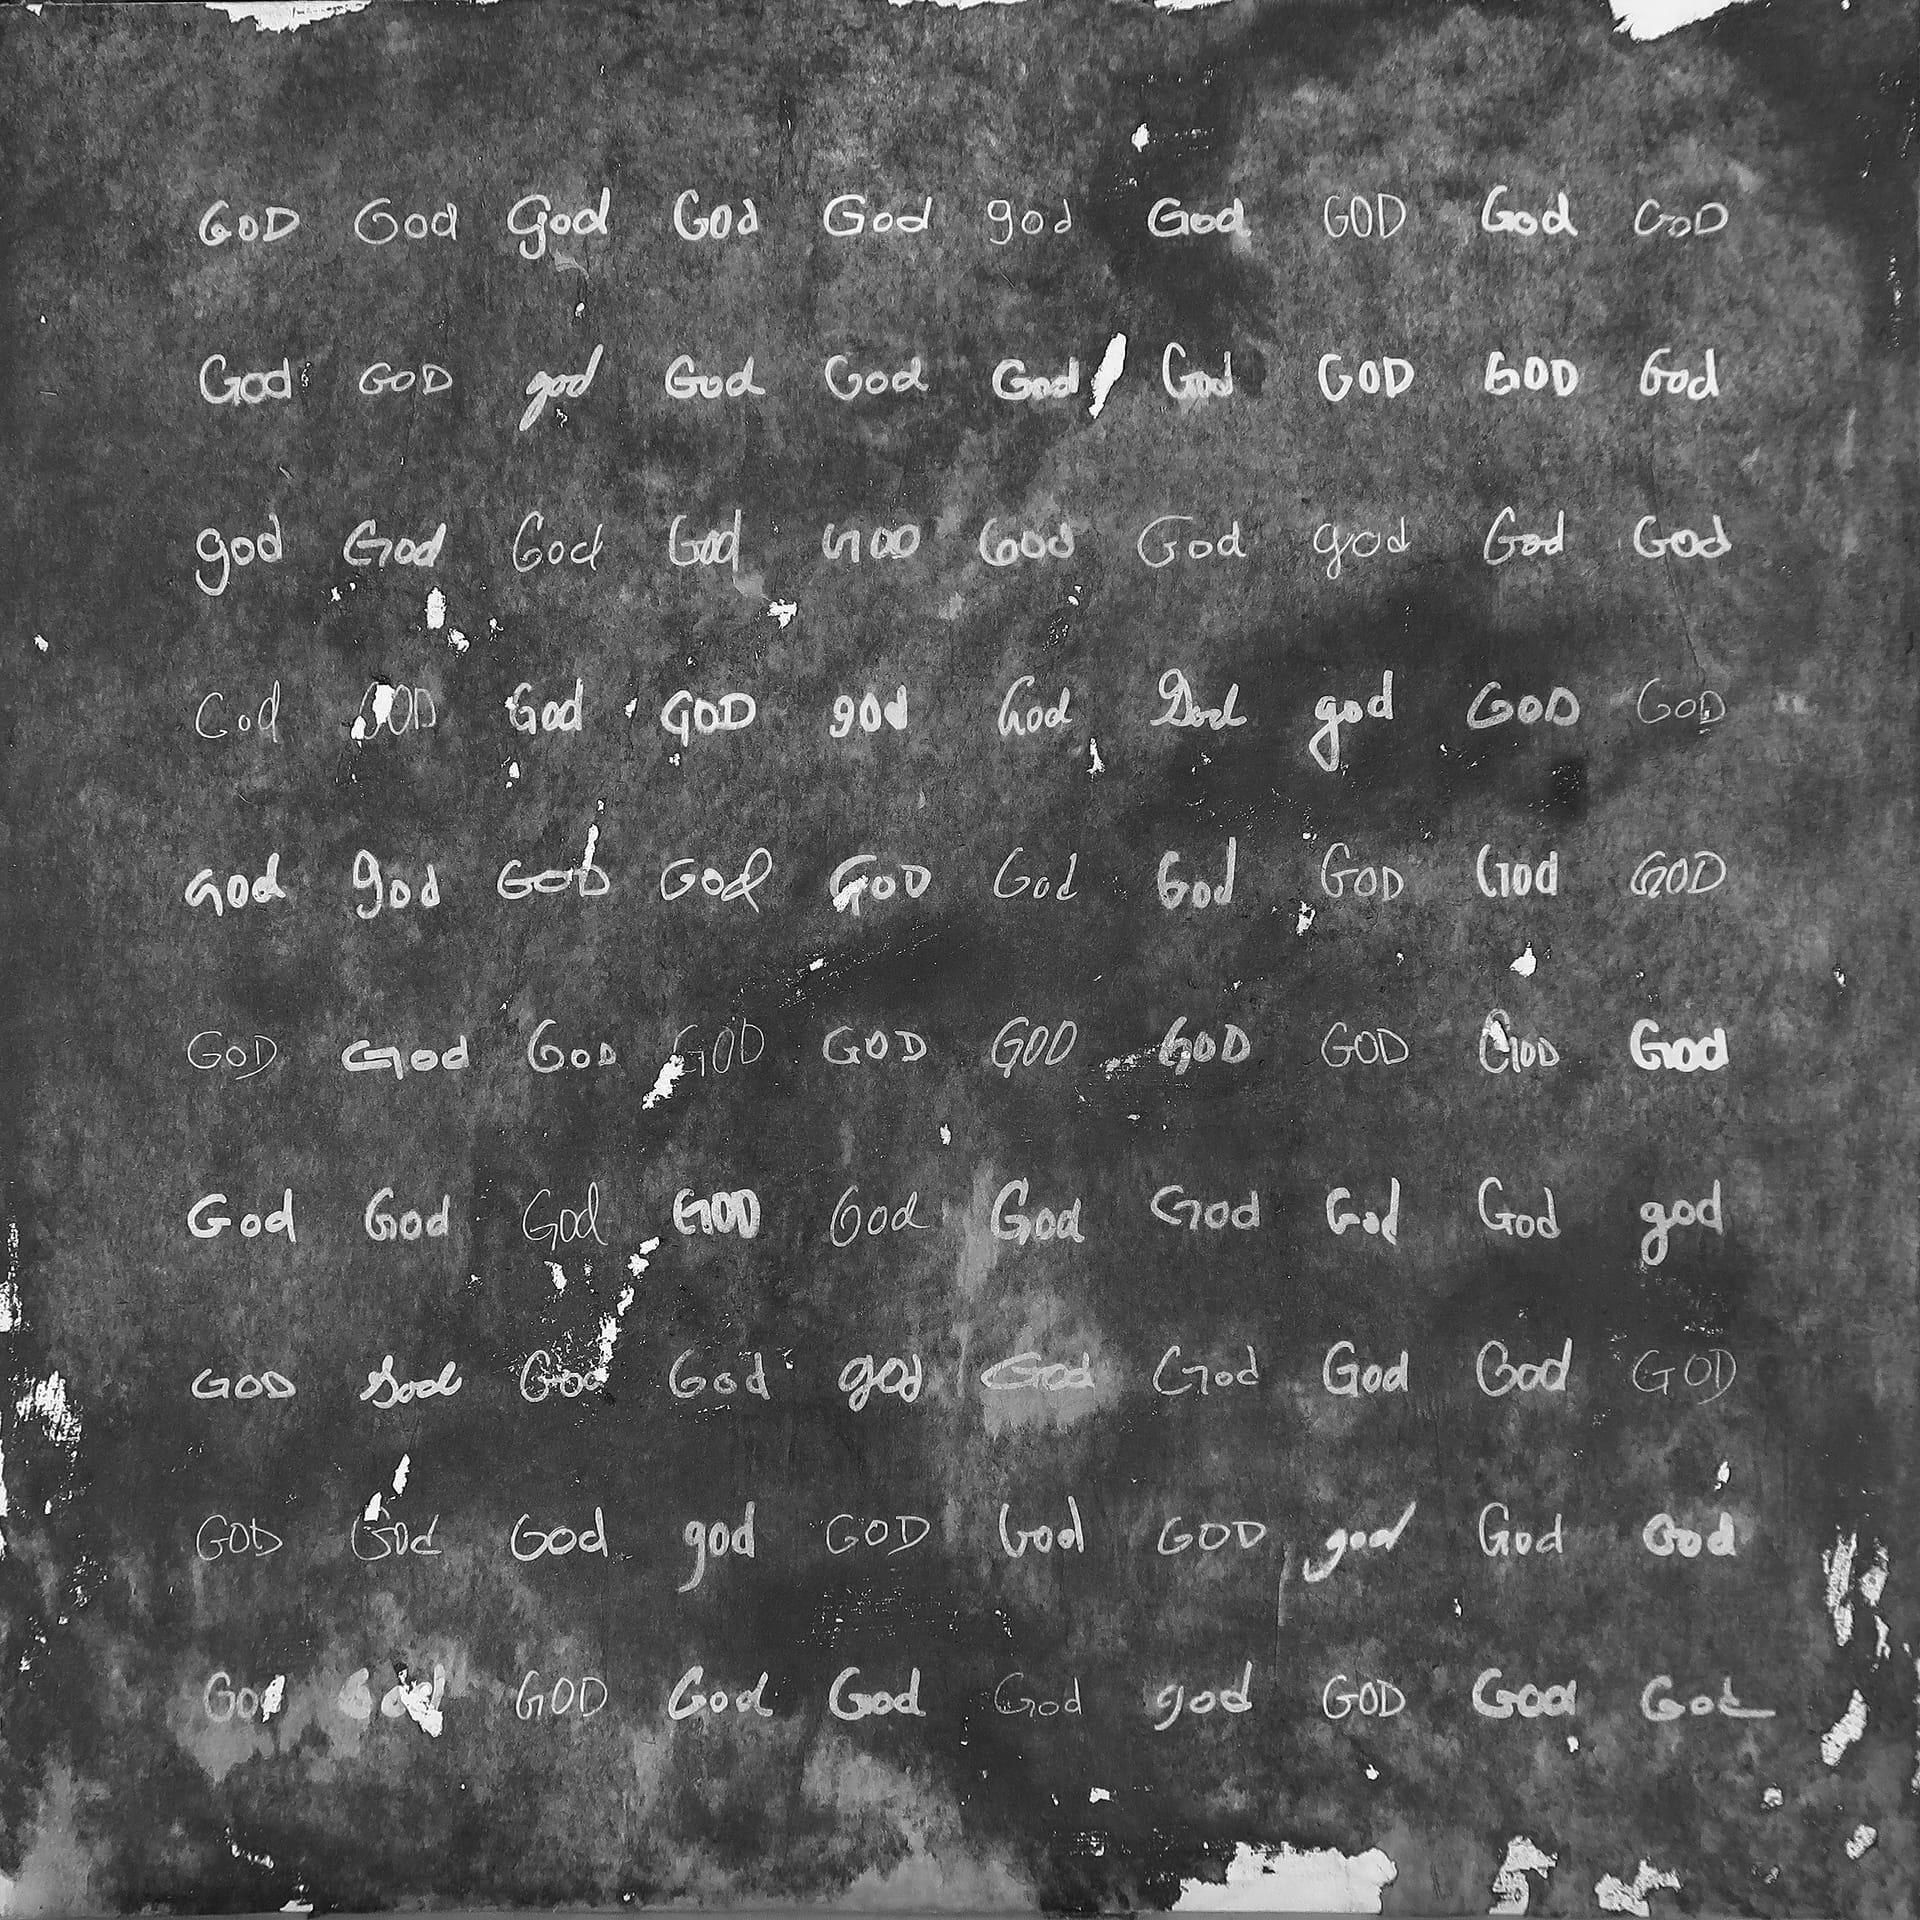 GOD God god God God god God GOD God GOD
God GOD god God God God God GOD GOD God
god God God God God God God god God God
God GOD God GOD god God God god GOD GOD
God god GOD God GOD God God GOD God GOD
GOD God GOD GOD GOD GOD GOD GOD GOD God
God God God GOD God God God God God god
GOD God God God god God God God God GOD
GOD God God god GOD God GOD god God God
God God GOD God God God god GOD God God